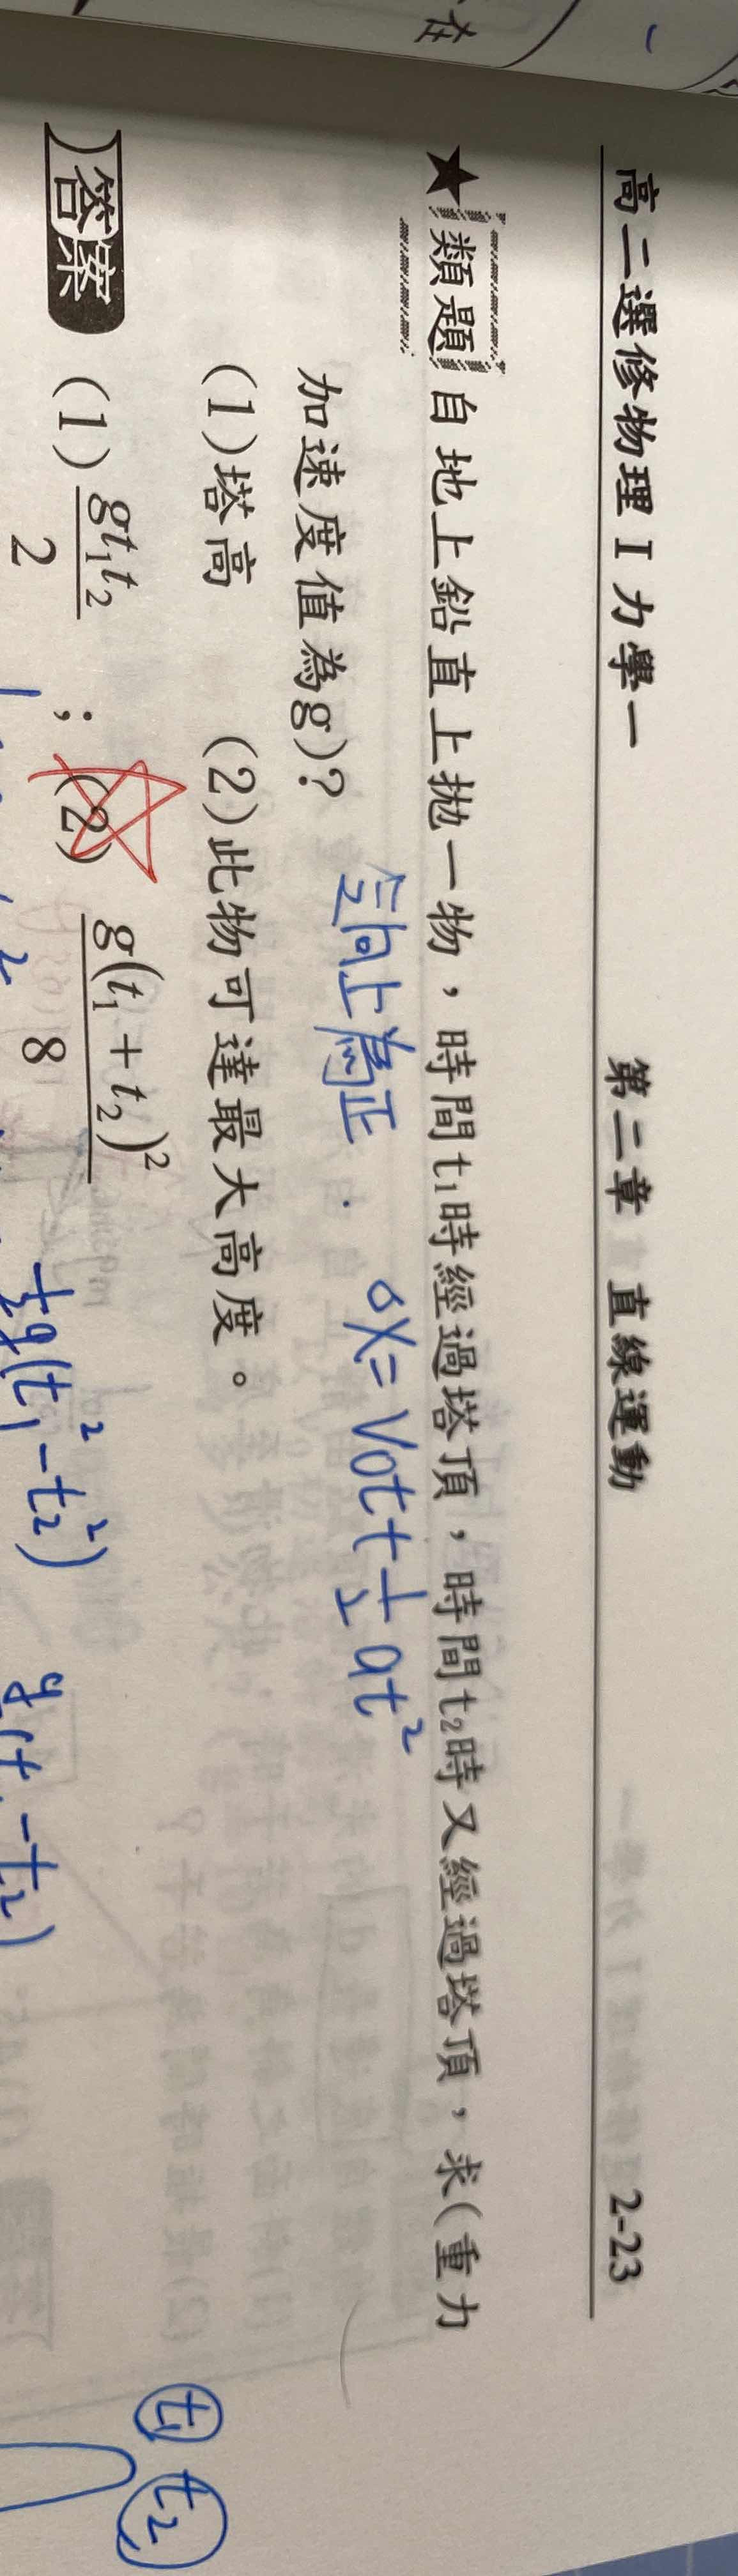 在
高二選修物理I力學一 第二章 直線運動 2-23
★類題 自地上鉛直上拋一物，時間t₁時經過塔頂，時間t₂時又經過塔頂，求(重力
加速度值為g)?
令向上為正. ΔX=V0t+½at²
(1)塔高 (2)此物可達最大高度。
答案 (1) gt₁t₂/2 ; (2) g(t₁+t₂)²/8
½g(t₁²-t₂²)
t₁ t₂